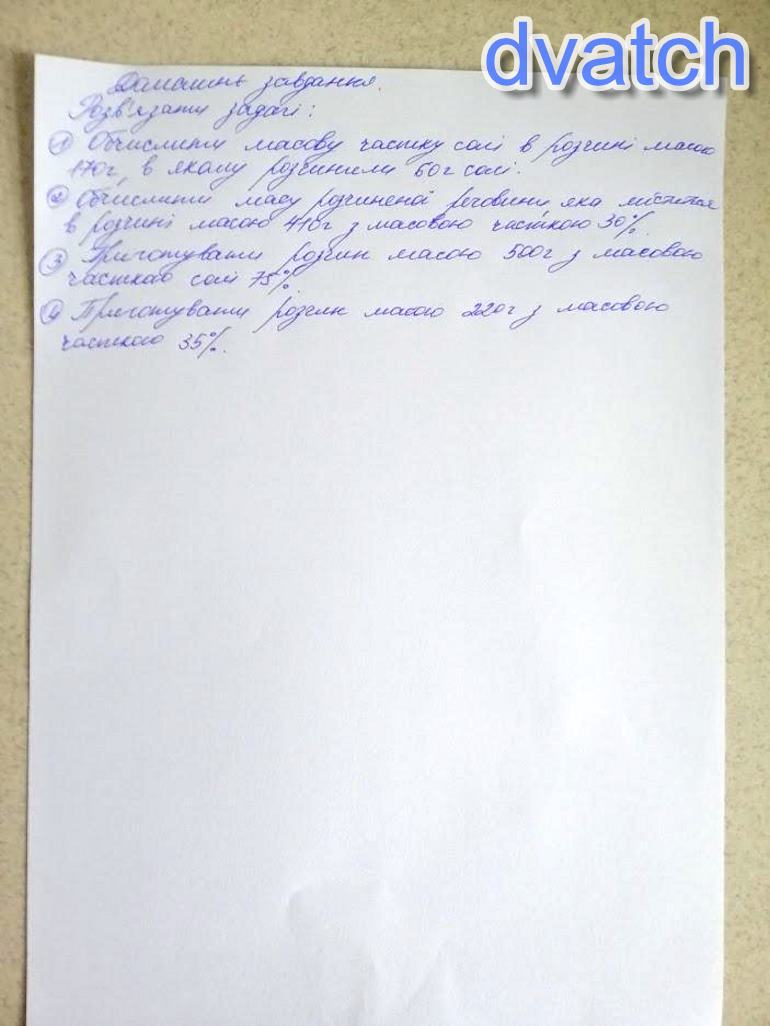 dvatch
Домашнє завдання.
Розв'язати задачі:
① Обчислити масову частку солі в розчині масою
170г, в якому розчинили 60г солі.
② Обчислити масу розчиненої речовини, яка міститься
в розчині масою 410г з масовою часткою 30%.
③ Приготувати розчин масою 500г з масовою
часткою солі 75%.
④ Приготувати розчин масою 220г з масовою
часткою 35%.